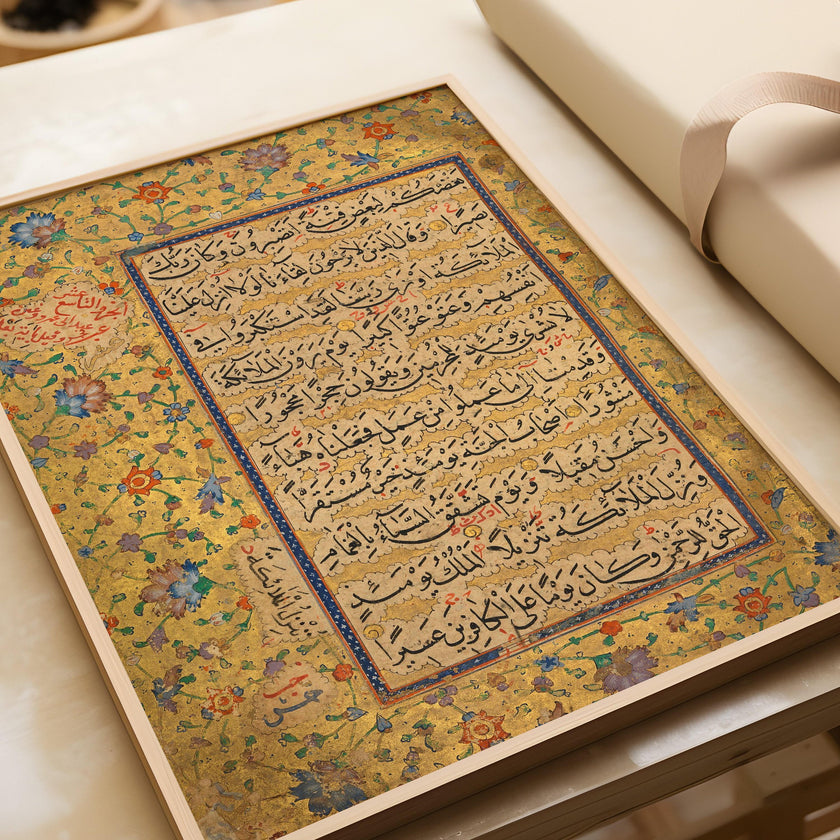 بعضكم لبعض فتنة أتصبرون وكان ربك
بصيرا وقال الذين لا يرجون لقاءنا لولا أنزل علينا
الملائكة أو نرى ربنا لقد استكبروا في
أنفسهم وعتوا عتوا كبيرا يوم يرون الملائكة
لا بشرى يومئذ للمجرمين ويقولون حجرا محجورا
وقدمنا إلى ما عملوا من عمل فجعلناه هباء
منثورا أصحاب الجنة يومئذ خير مستقرا
وأحسن مقيلا ويوم تشقق السماء بالغمام
ونزل الملائكة تنزيلا الملك يومئذ
الحق للرحمن وكان يوما على الكافرين عسيرا
التاسع
عشر